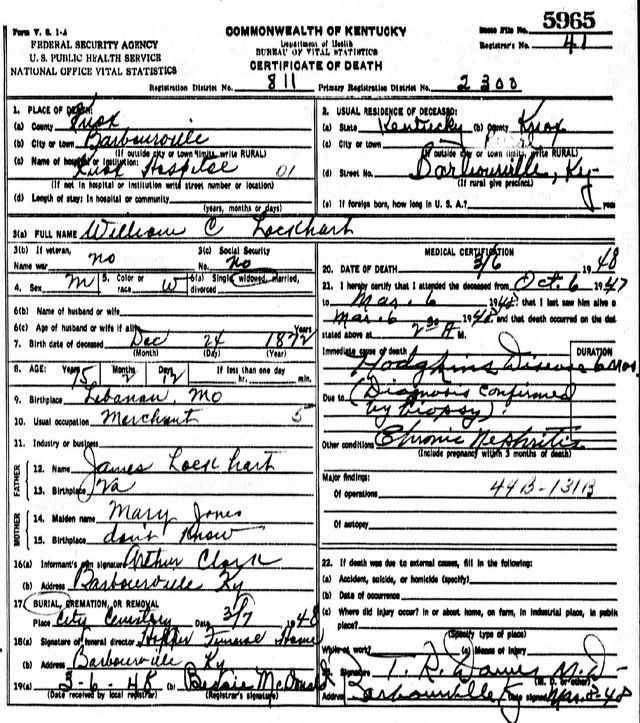 Form V. S. 1-A
FEDERAL SECURITY AGENCY
U. S. PUBLIC HEALTH SERVICE
NATIONAL OFFICE VITAL STATISTICS
COMMONWEALTH OF KENTUCKY
Department of Health
BUREAU OF VITAL STATISTICS
CERTIFICATE OF DEATH
File No. 5965
Registrar's No. 41
Registration District No. 811 Primary Registration District No. 2300
1. PLACE OF DEATH:
(a) County Knox
(b) City or town Barbourville
(If outside city or town limits, write RURAL)
(c) Name of hospital or institution:
Knox Hospital 01
(If not in hospital or institution write street number or location)
(d) Length of stay: In hospital or community
(years, months or days)
2. USUAL RESIDENCE OF DECEASED:
(a) State Kentucky (b) County Knox
(c) City or town
(If outside city or town limits, write RURAL)
(d) Street No. Barbourville, Ky-
(If rural give precinct)
(e) If foreign born, how long in U. S. A.? years
3(a) FULL NAME William C Lockhart
3(b) If veteran,
Name war no
3(c) Social Security
No. No
4. Sex M 5. Color or race W 6(a) Single, widowed, married, divorced
6(b) Name of husband or wife
6(c) Age of husband or wife if alive Years
7. Birth date of deceased Dec 24 1872
(Month) (Day) (Year)
8. AGE: Years 75 Months 2 Days 12 If less than one day
hr. min.
9. Birthplace Lebanon, Mo
10. Usual occupation Merchant 5
11. Industry or business
FATHER
12. Name James Lockhart
13. Birthplace Va
MOTHER
14. Maiden name Mary Jones
15. Birthplace don't Know
16(a) Informant's own signature Arthur Clark
(b) Address Barbourville Ky
17. BURIAL, CREMATION, OR REMOVAL
Place City Cemetery Date 3/7 1948
18(a) Signature of funeral director Hopper Funeral Home
(b) Address Barbourville Ky
19(a) 3-6-48 (b) Bessie McDonald
(Date received by local registrar) (Registrar's signature)
MEDICAL CERTIFICATION
20. DATE OF DEATH 3/6 1948
21. I hereby certify that I attended the deceased from Oct. 6 1947
to Mar. 6 1948, that I last saw him alive on
Mar. 6 1948 and that death occurred on the date
stated above at 2 A M.
Immediate cause of death DURATION
Hodgkins Disease 6 mos.
Due to (Diagnosis confirmed
by biopsy).
Other conditions Chronic Nephritis
(Include pregnancy within 3 months of death)
Major findings:
Of operations 44B-131B
Of autopsy
22. If death was due to external causes, fill in the following:
(a) Accident, suicide, or homicide (specify)
(b) Date of occurrence
(c) Where did injury occur? In or about home, on farm, in industrial place, in public
place?
(Specify type of place)
While at work? (e) Means of injury
23. Signature T. R. Davies M.D-
(M. D. or other)
Address Barbourville, Ky Date signed Mar. 8-48